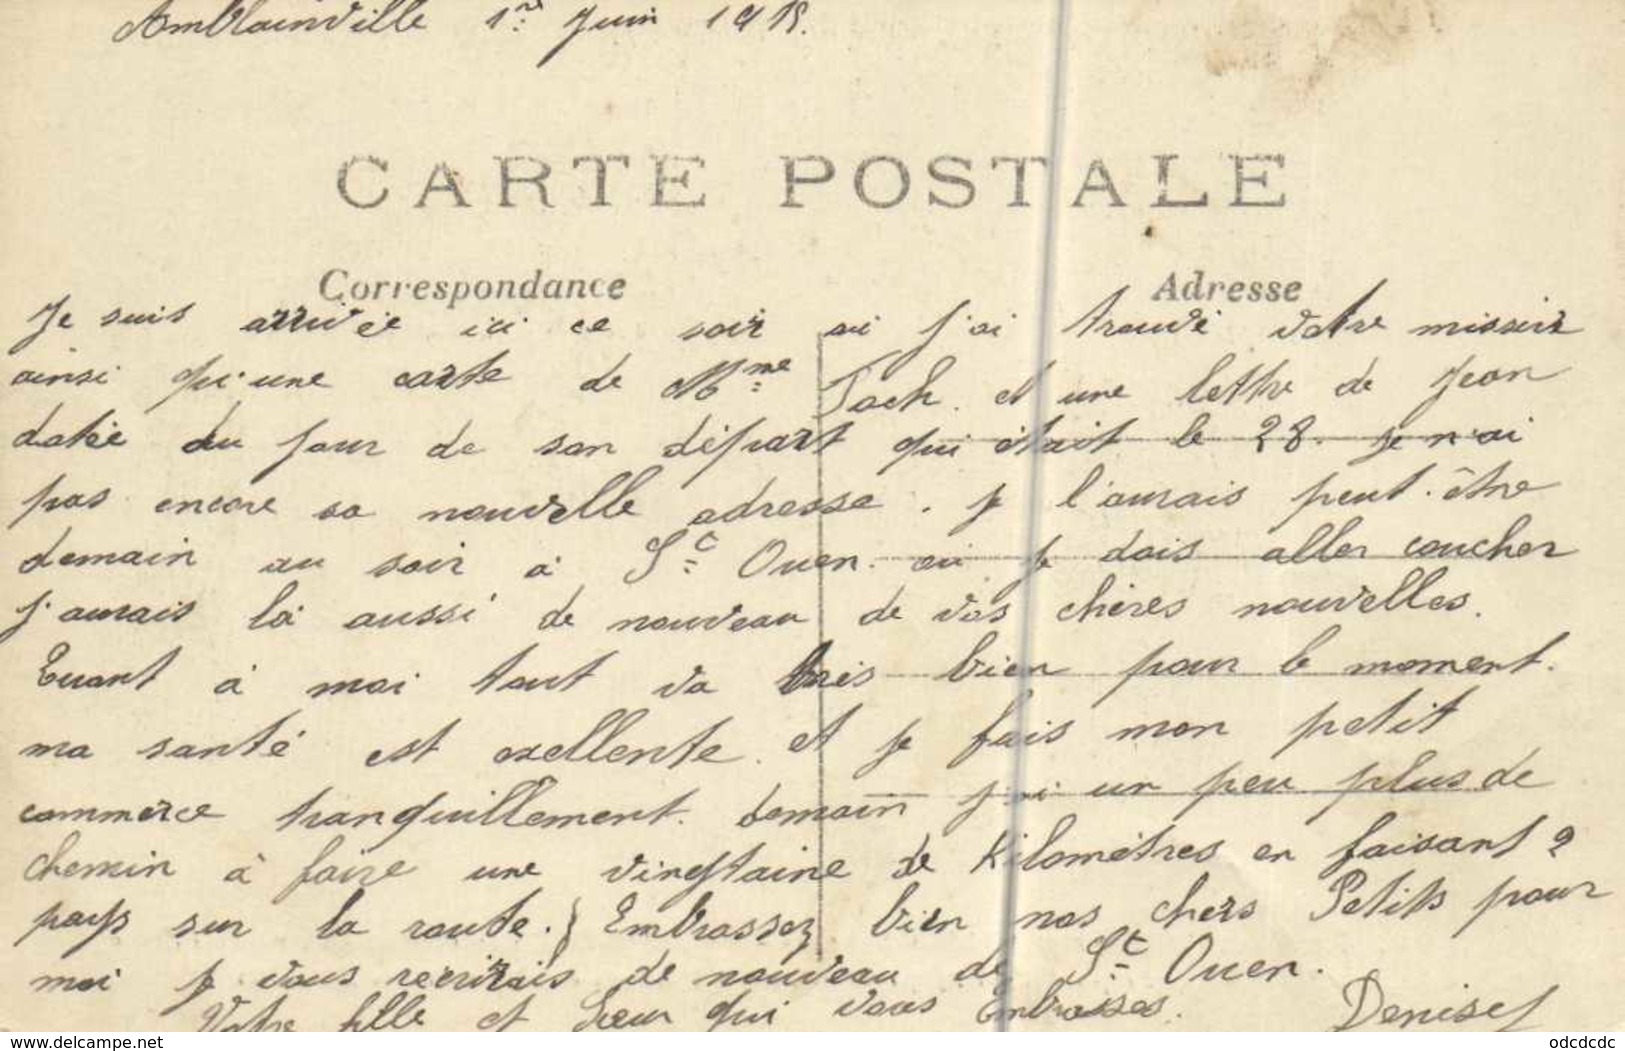 Amblainville 1er Juin 1915.
CARTE POSTALE
Correspondance
Adresse
Je suis arrivée ici ce soir où j'ai trouvé votre missive
ainsi qu'une carte de Mme Tach. et une lettre de Jean
datée du jour de son départ qui était le 28. je n'ai
pas encore sa nouvelle adresse. je l'aurais peut-être
demain au soir à St Ouen. où je dois aller coucher
j'aurais là aussi de nouveau de vos chères nouvelles.
Quant à moi tout va très bien pour le moment.
ma santé est exellente. et je fais mon petit
commerce tranquillement. demain j'ai un peu plus de
chemin à faire une vingtaine de Kilomètres en faisant 2
pays sur la route. } Embrassez bien nos chers Petits pour
moi je vous recrirais de nouveau de St Ouen.
Votre fille et Soeur qui vous Embrasses.
Denise
www.delcampe.net
odcdcdc